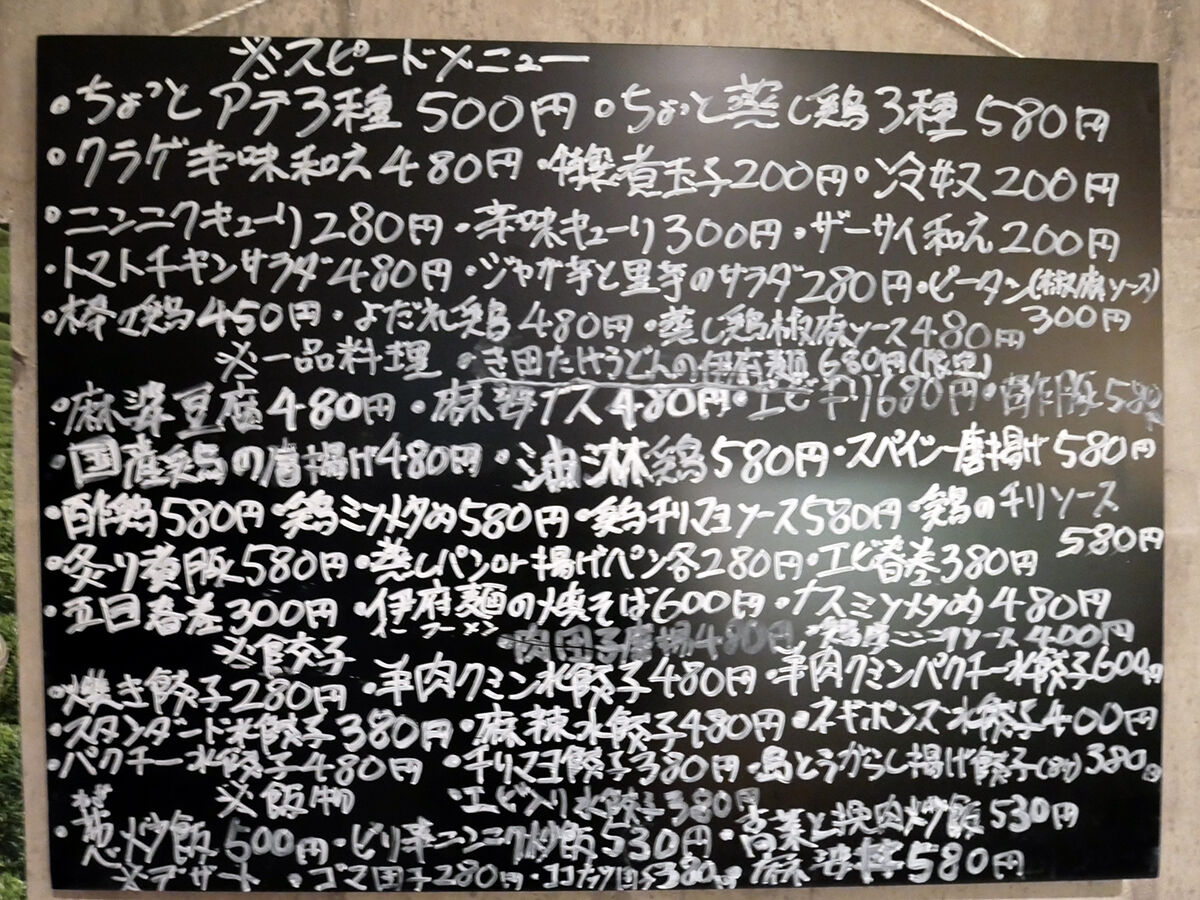 ※スピードメニュー
・ちょっとアテ3種 500円 ・ちょっと蒸し鶏3種 580円
・クラゲ辛味和え480円 ・煮玉子200円・冷奴200円
・ニンニクキューリ280円 ・辛味キューリ300円 ・ザーサイ和え200円
・トマトチャンサラダ480円 ・ジャガ芋と里芋のサラダ280円・ピータン(椒麻ソース)
300円
・棒々鶏450円 ・よだれ鶏480円 ・蒸し鶏椒麻ソース480円
※一品料理 ・き田たけうどんの伊府麺680円(限定)
・麻婆豆腐480円 ・麻婆ナス480円・エビチリ680円・酢豚580
・国産鶏の唐揚げ480円 ・油淋鶏580円・スパイシー唐揚げ580円
・酢鶏580円・鶏ミンメタめ580円・鶏チリマヨソース580円・鶏のチリソース
580円
・炙り煮豚580円・蒸しパンor揚げパン各280円・エビ春巻380円
・五目春巻300円 ・伊府麺の焼そば600円・ナスミンメタめ480円
イーフーメン 肉団子唐揚480円 ソース400円
※餃子
・焼き餃子280円 ・羊肉クミン水餃子480円 ・羊肉クミンパクチー水餃子600円
・スタンダード水餃子380円 ・麻辣水餃子480円・ネギポンズ水餃子400円
・パクチー水餃子480円 ・チリマヨ餃子380円・島とうがらし揚げ餃子 380円
※飯物 エビ入り水餃子380円
・ねぎ炒飯500円・ピリ辛ニンニク炒飯530円・高菜と挽肉炒飯530円
※デザート ・ゴマ団子280円・ココナッツ団子380円 麻婆丼580円